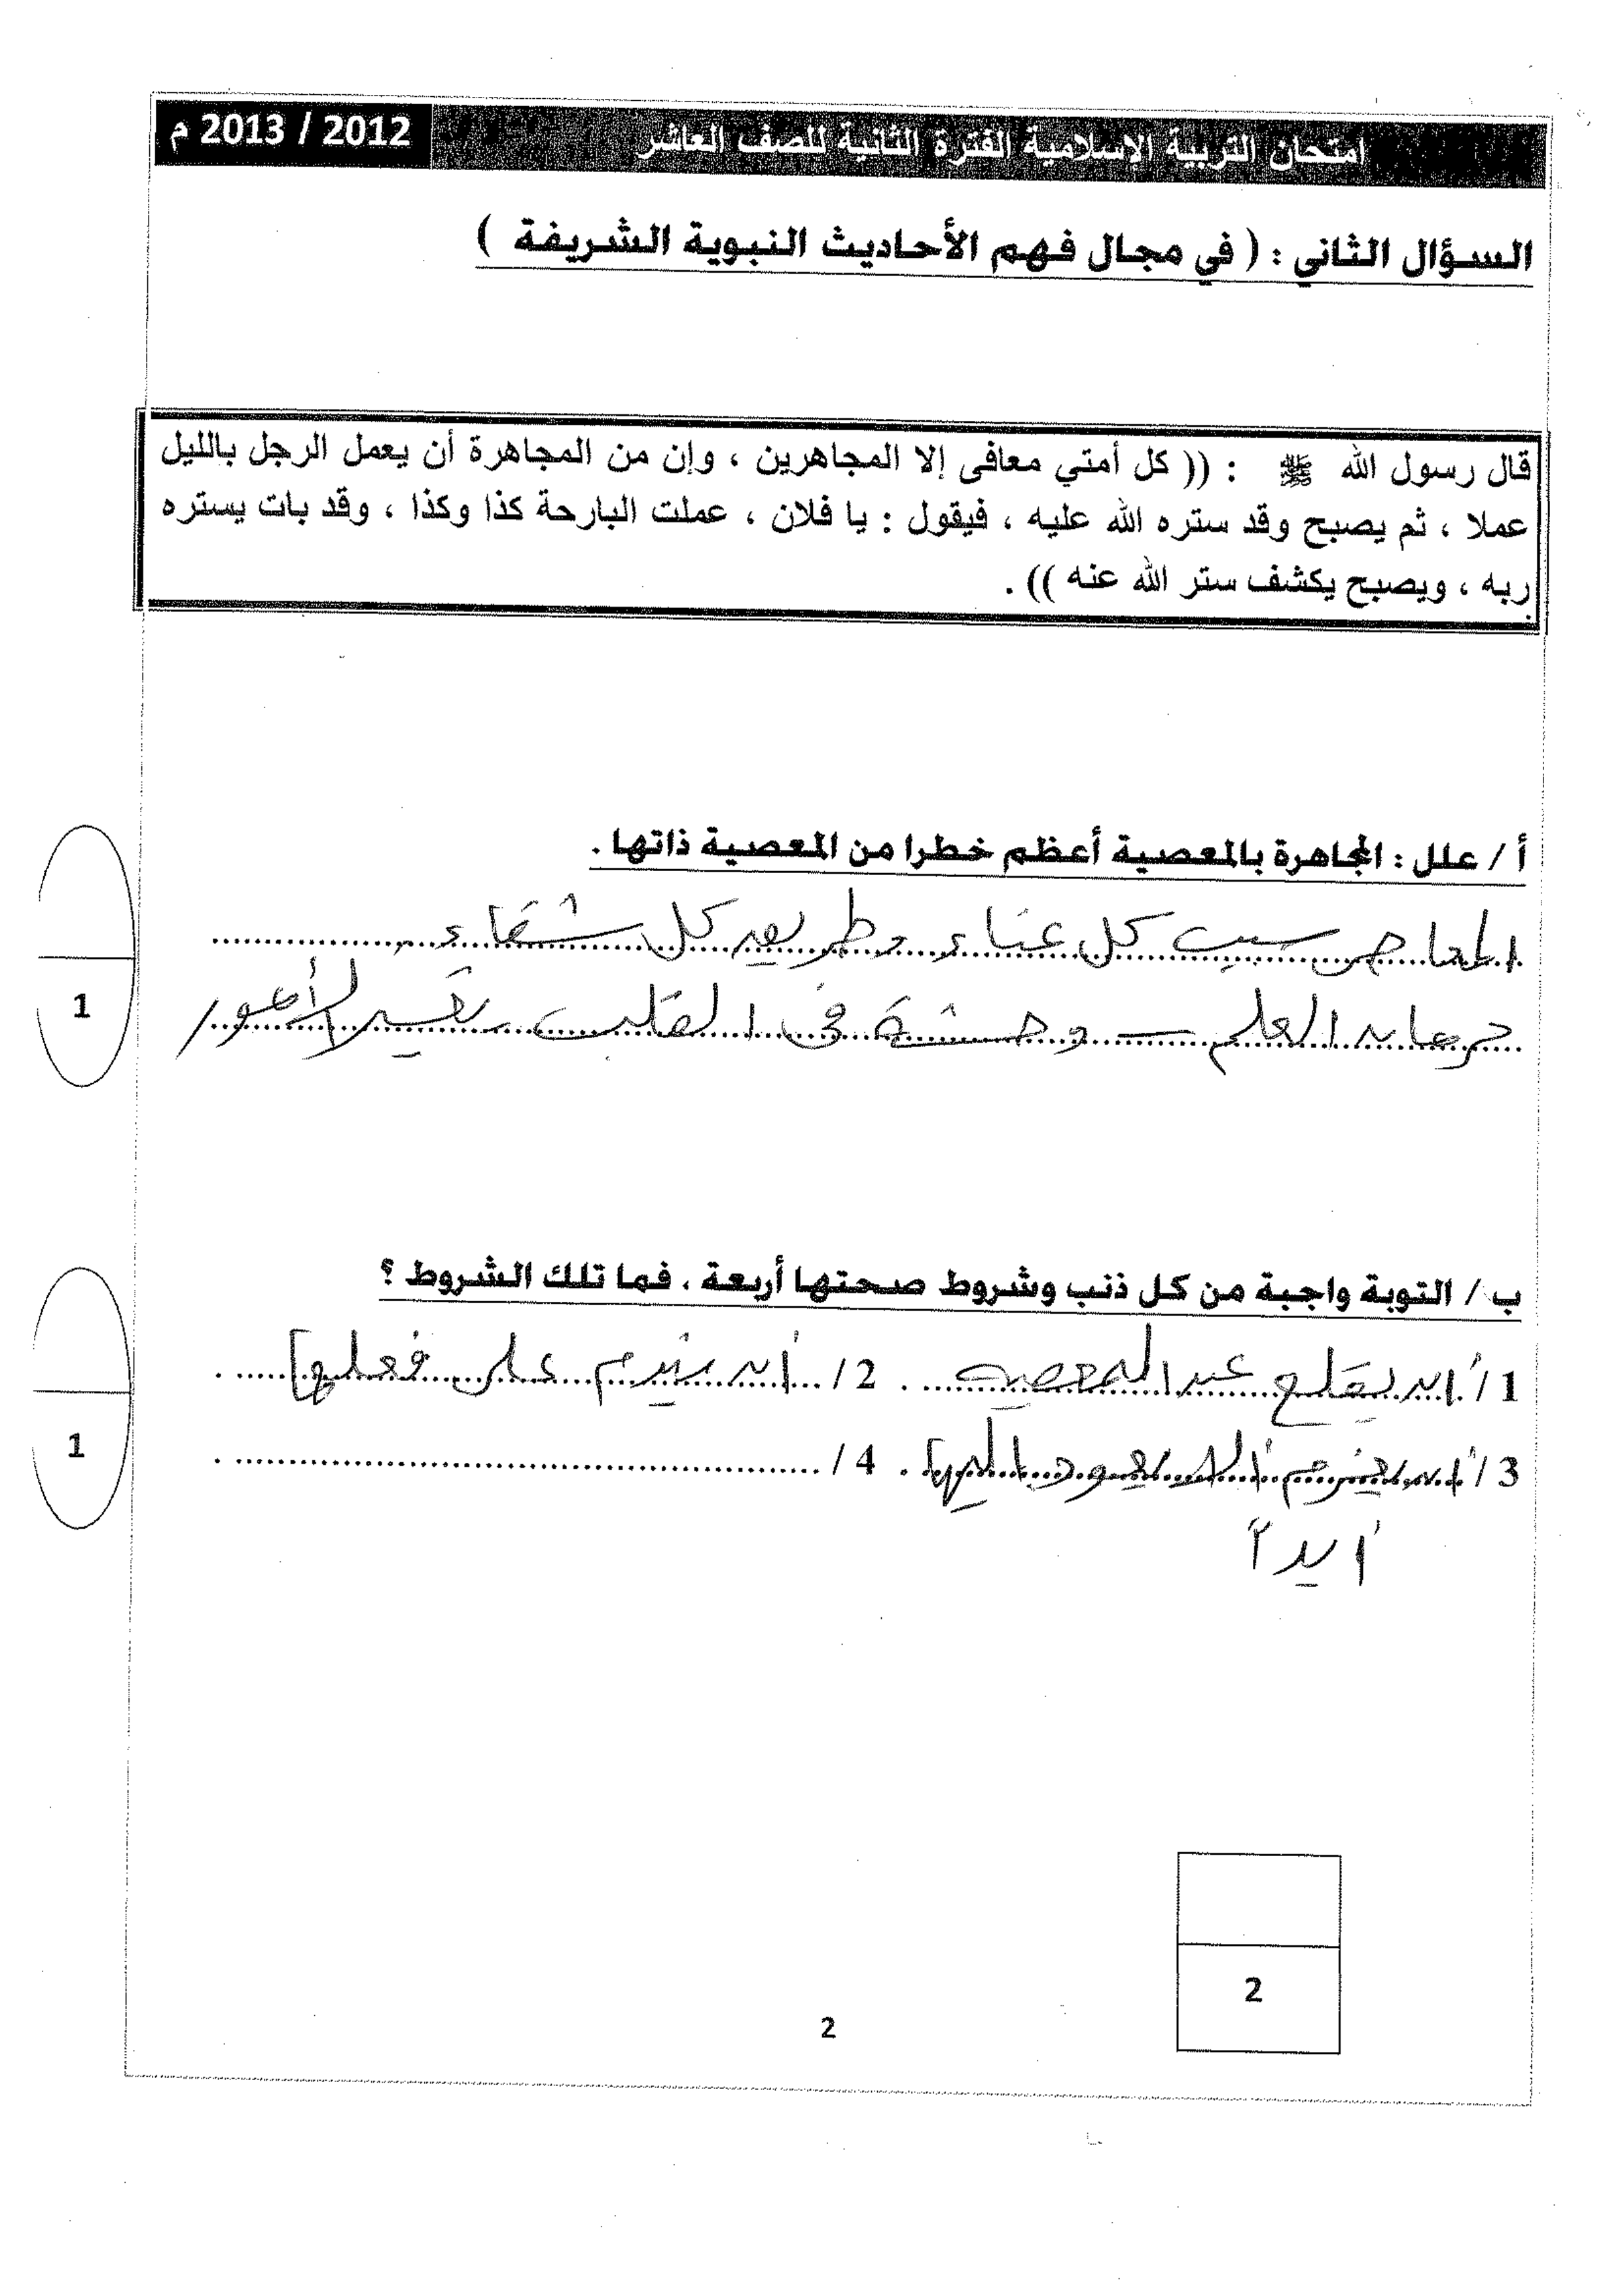 امتحان التربية الإسلامية الفترة الثانية للصف العاشر 2012 / 2013 م
السؤال الثاني : ( في مجال فهم الأحاديث النبوية الشريفة )
قال رسول الله ﷺ : (( كل أمتي معافى إلا المجاهرين ، وإن من المجاهرة أن يعمل الرجل بالليل
عملا ، ثم يصبح وقد ستره الله عليه ، فيقول : يا فلان ، عملت البارحة كذا وكذا ، وقد بات يستره
ربه ، ويصبح يكشف ستر الله عنه )) .
أ / علل : المجاهرة بالمعصية أعظم خطرا من المعصية ذاتها .
المعاصي سبب كل عناء وطريق كل شقاء
حرمان العلم - وحشة في القلب تعسير الأمور
1
ب / التوبة واجبة من كل ذنب وشروط صحتها أربعة ، فما تلك الشروط ؟
1 / أن يقلع عن المعصية . 2 / أن يندم على فعلها .
3 / أن يعزم ألا يعود إليها . 4 / .
أبداً
1
2
2